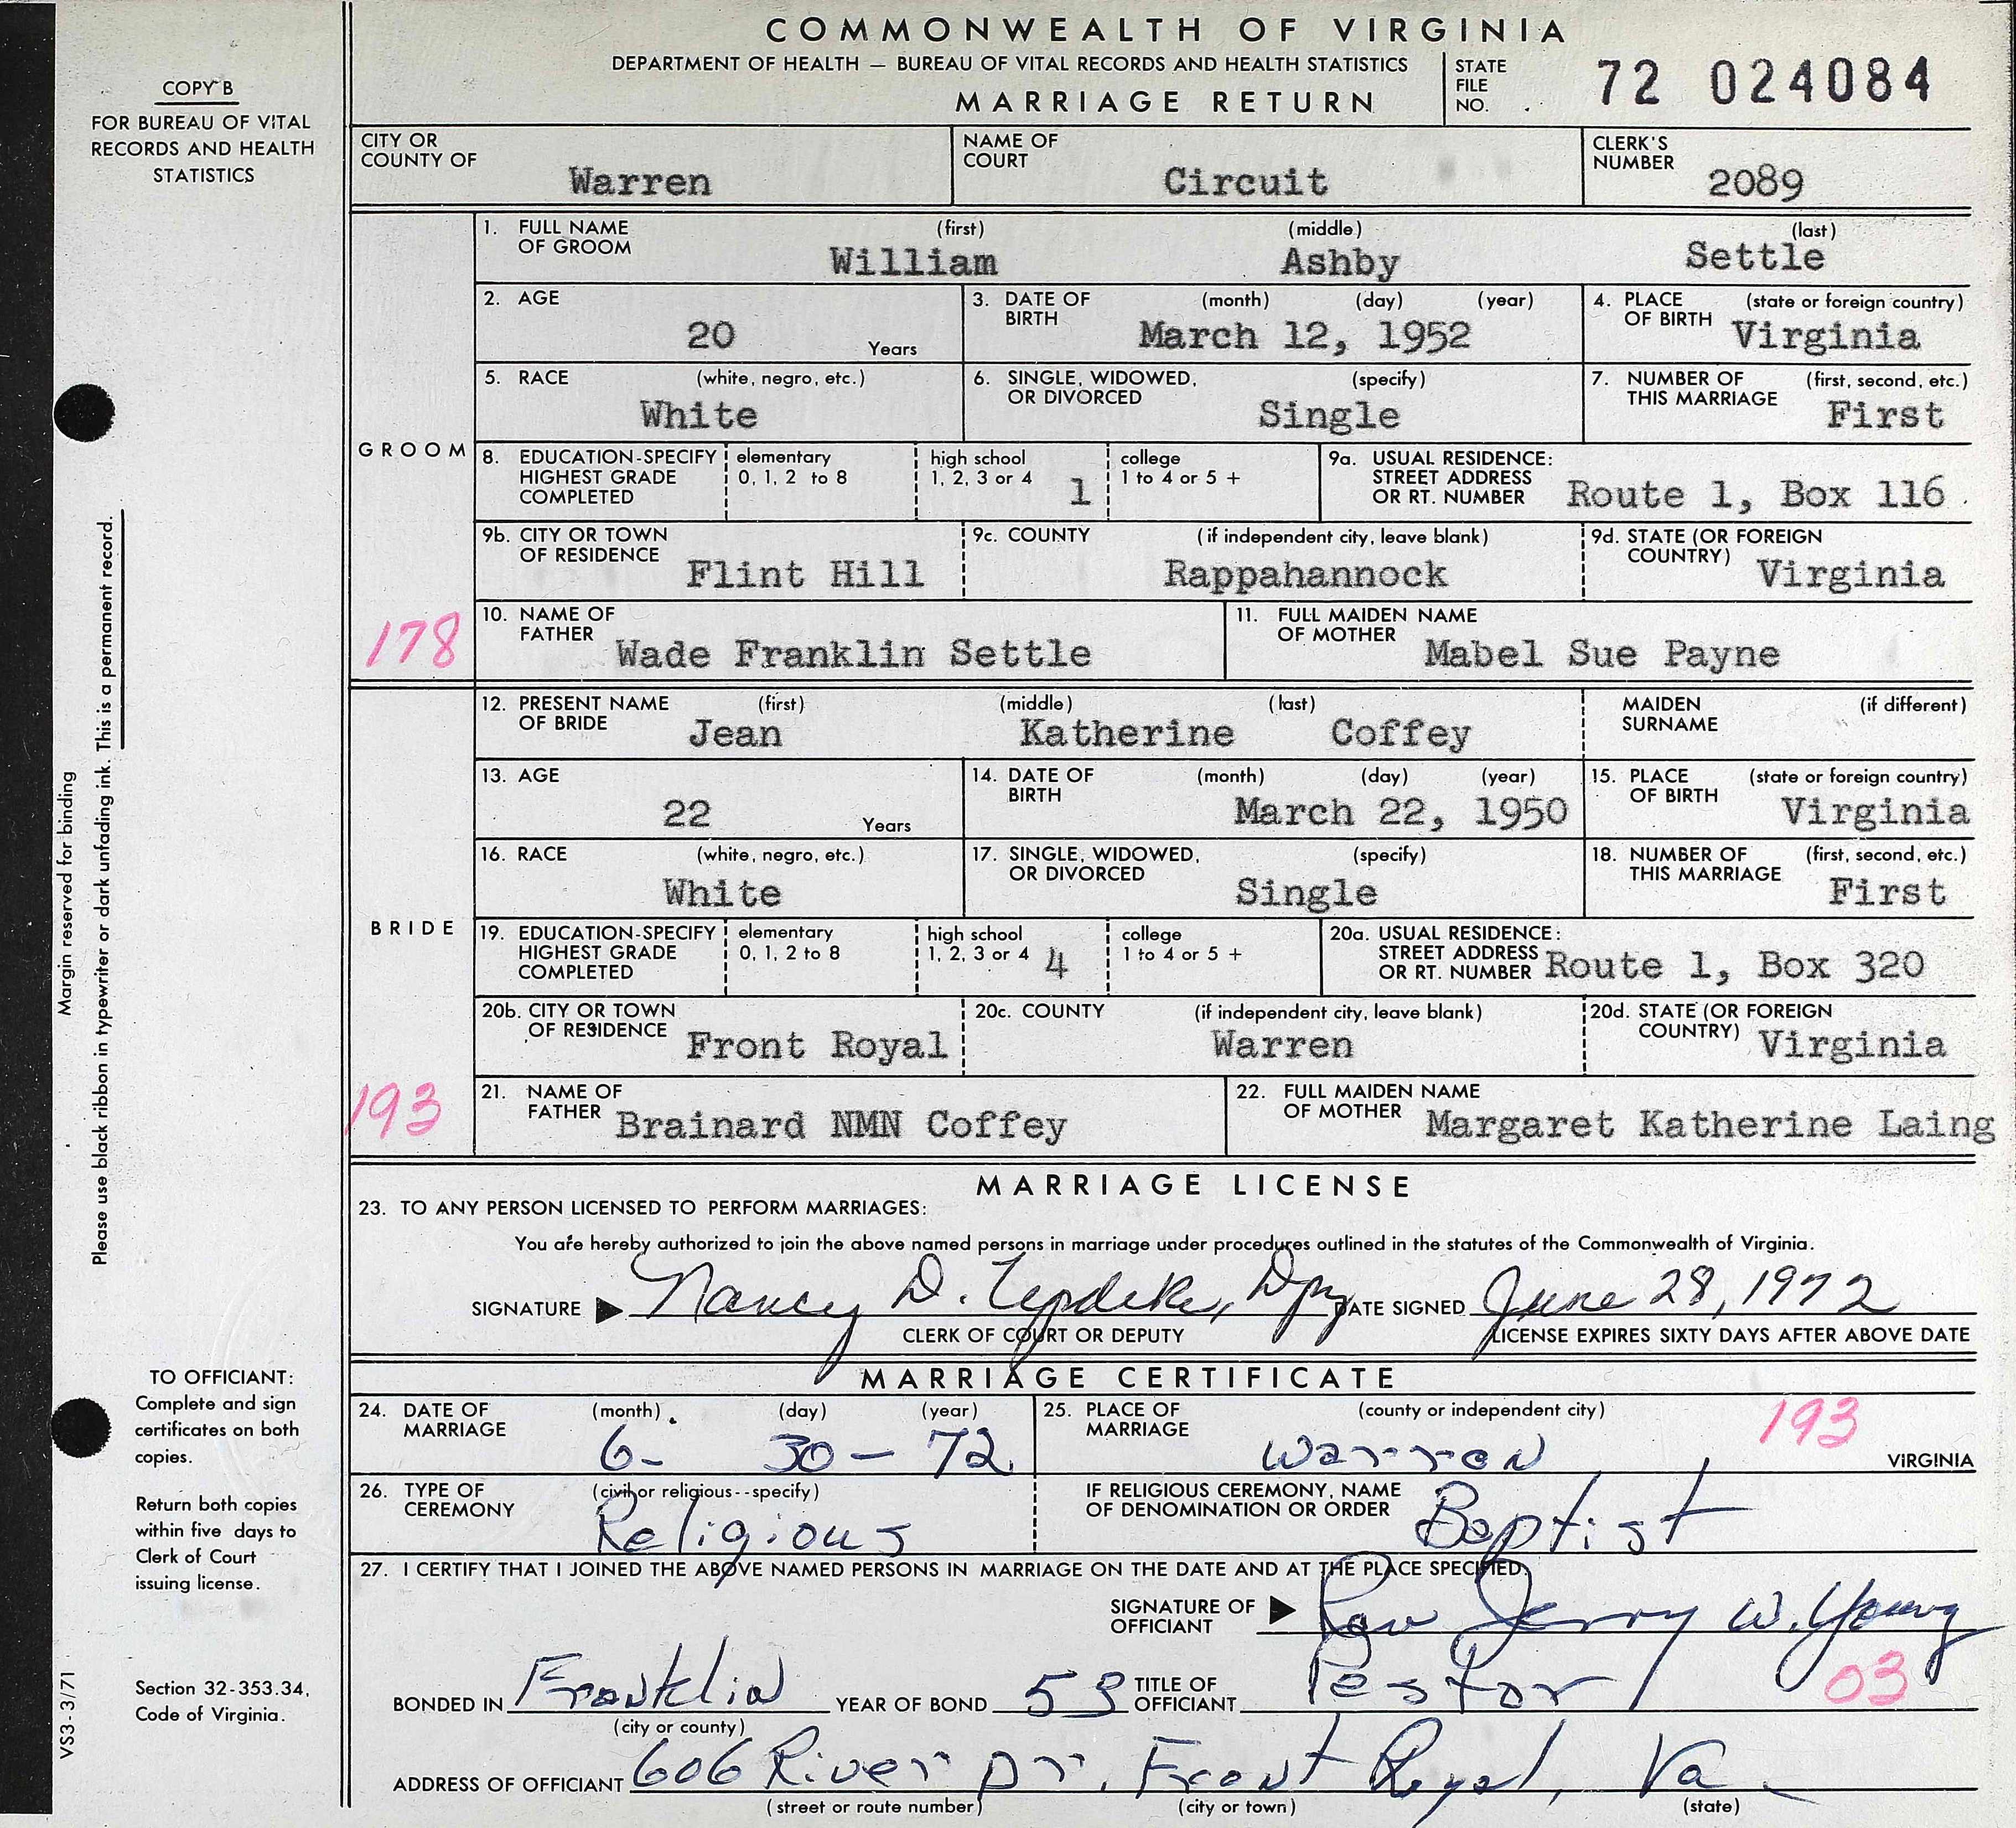 COMMONWEALTH OF VIRGINIA
DEPARTMENT OF HEALTH — BUREAU OF VITAL RECORDS AND HEALTH STATISTICS
MARRIAGE RETURN
STATE FILE NO. 72 024084
COPY B
FOR BUREAU OF VITAL
RECORDS AND HEALTH
STATISTICS
CITY OR COUNTY OF Warren
NAME OF COURT Circuit
CLERK'S NUMBER 2089
GROOM
178
1. FULL NAME OF GROOM (first) William (middle) Ashby (last) Settle
2. AGE 20 Years
3. DATE OF BIRTH (month) (day) (year) March 12, 1952
4. PLACE OF BIRTH (state or foreign country) Virginia
5. RACE (white, negro, etc.) White
6. SINGLE, WIDOWED, OR DIVORCED (specify) Single
7. NUMBER OF THIS MARRIAGE (first, second, etc.) First
8. EDUCATION-SPECIFY HIGHEST GRADE COMPLETED elementary 0, 1, 2 to 8 high school 1, 2, 3 or 4 1 college 1 to 4 or 5 +
9a. USUAL RESIDENCE: STREET ADDRESS OR RT. NUMBER Route 1, Box 116
9b. CITY OR TOWN OF RESIDENCE Flint Hill
9c. COUNTY (if independent city, leave blank) Rappahannock
9d. STATE (OR FOREIGN COUNTRY) Virginia
10. NAME OF FATHER Wade Franklin Settle
11. FULL MAIDEN NAME OF MOTHER Mabel Sue Payne
BRIDE
193
12. PRESENT NAME OF BRIDE (first) Jean (middle) Katherine (last) Coffey
MAIDEN SURNAME (if different)
13. AGE 22 Years
14. DATE OF BIRTH (month) (day) (year) March 22, 1950
15. PLACE OF BIRTH (state or foreign country) Virginia
16. RACE (white, negro, etc.) White
17. SINGLE, WIDOWED, OR DIVORCED (specify) Single
18. NUMBER OF THIS MARRIAGE (first, second, etc.) First
19. EDUCATION-SPECIFY HIGHEST GRADE COMPLETED elementary 0, 1, 2 to 8 high school 1, 2, 3 or 4 4 college 1 to 4 or 5 +
20a. USUAL RESIDENCE: STREET ADDRESS OR RT. NUMBER Route 1, Box 320
20b. CITY OR TOWN OF RESIDENCE Front Royal
20c. COUNTY (if independent city, leave blank) Warren
20d. STATE (OR FOREIGN COUNTRY) Virginia
21. NAME OF FATHER Brainard NMN Coffey
22. FULL MAIDEN NAME OF MOTHER Margaret Katherine Laing
MARRIAGE LICENSE
23. TO ANY PERSON LICENSED TO PERFORM MARRIAGES:
You are hereby authorized to join the above named persons in marriage under procedures outlined in the statutes of the Commonwealth of Virginia.
SIGNATURE Nancy D. Updike, Dpy DATE SIGNED June 28, 1972
CLERK OF COURT OR DEPUTY LICENSE EXPIRES SIXTY DAYS AFTER ABOVE DATE
MARRIAGE CERTIFICATE
24. DATE OF MARRIAGE (month) (day) (year) 6- 30 - 72
25. PLACE OF MARRIAGE (county or independent city) Warren 193 VIRGINIA
26. TYPE OF CEREMONY (civil or religious--specify) Religious
IF RELIGIOUS CEREMONY, NAME OF DENOMINATION OR ORDER Baptist
27. I CERTIFY THAT I JOINED THE ABOVE NAMED PERSONS IN MARRIAGE ON THE DATE AND AT THE PLACE SPECIFIED.
SIGNATURE OF OFFICIANT Rev Jerry W. Young
BONDED IN Franklin YEAR OF BOND 53 TITLE OF OFFICIANT Pastor 03
(city or county)
ADDRESS OF OFFICIANT 606 River Dr. Front Royal, Va.
(street or route number) (city or town) (state)
Margin reserved for binding
Please use black ribbon in typewriter or dark unfading ink. This is a permanent record.
TO OFFICIANT:
Complete and sign
certificates on both
copies.
Return both copies
within five days to
Clerk of Court
issuing license.
Section 32-353.34,
Code of Virginia.
VS3-3/71